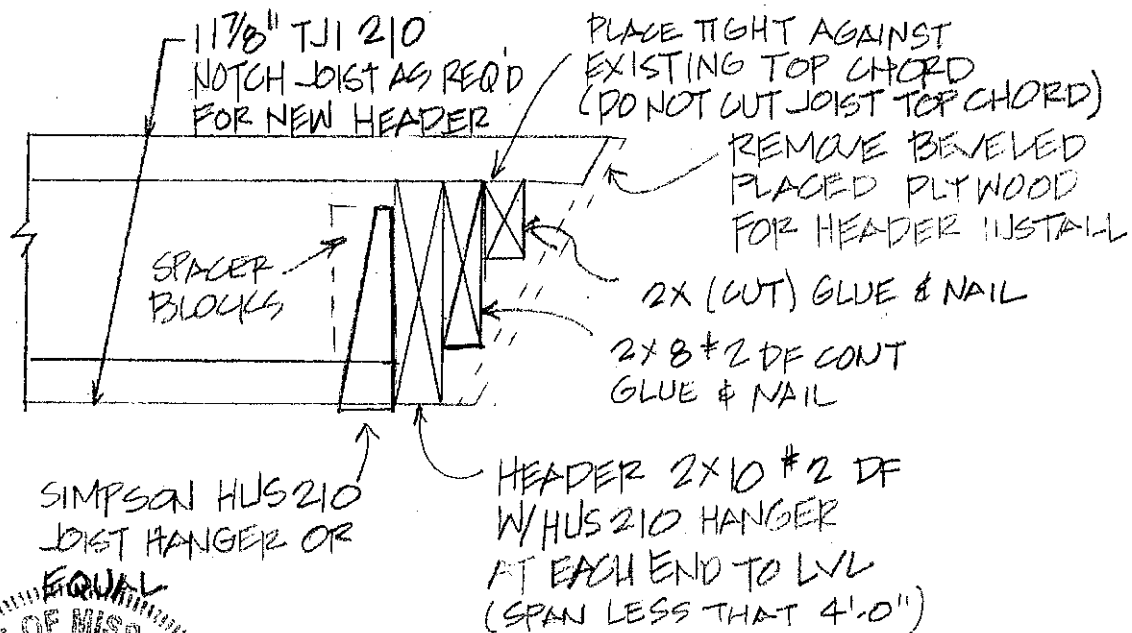 11 7/8" TJI 210
NOTCH JOIST AS REQ'D
FOR NEW HEADER
PLACE TIGHT AGAINST
EXISTING TOP CHORD
(DO NOT CUT JOIST TOP CHORD)
REMOVE BEVELED
PLACED PLYWOOD
FOR HEADER INSTALL
SPACER
BLOCKS
2X (CUT) GLUE & NAIL
2X8 #2 DF CONT
GLUE & NAIL
SIMPSON HUS210
JOIST HANGER OR
EQUAL
HEADER 2X10 #2 DF
W/HUS210 HANGER
AT EACH END TO LVL
(SPAN LESS THAT 4'-0")
OF